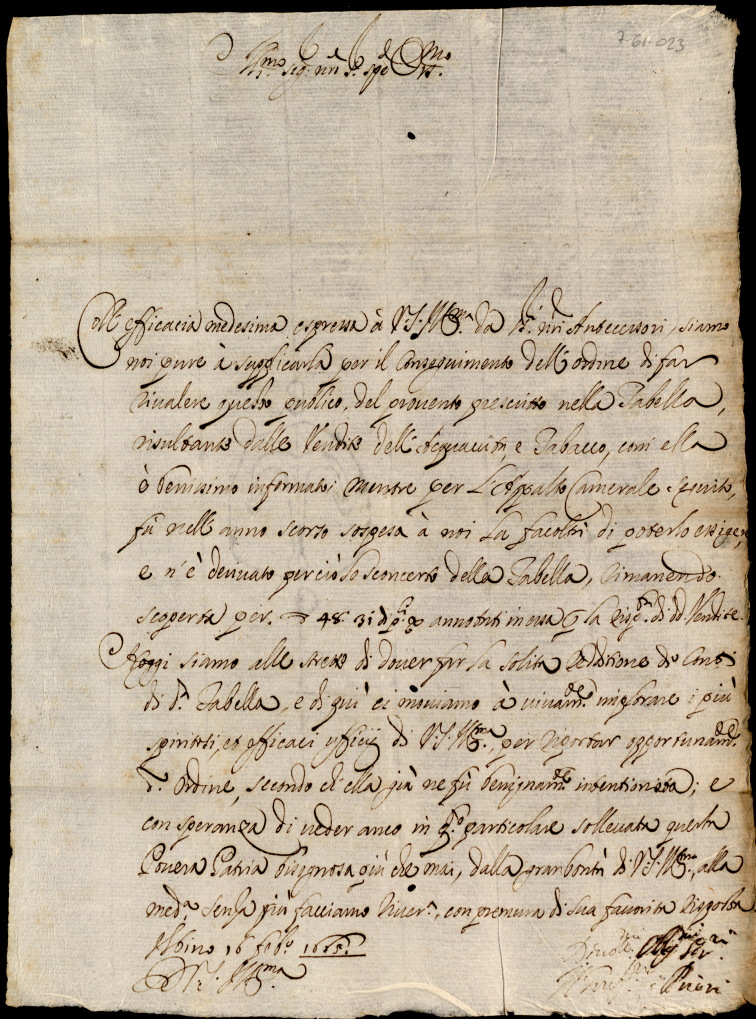 7-61-023
Ill.mo Sig.
Coll' efficacia medesima espressa à V.S. Ill.ma da ss.ri nri Antecessori, siamo
noi pure à supplicarla per il conseguimento dell' ordine di far
rivalere questo publico, del provento prescritto nella Tabella,
risultante dalle Vendite dell' Acquavita e Tabacco, com' ella
è benissimo informata; mentre per L'Appalto Camerale
fù nell' anno scorso sospesa à noi La facoltà di poterlo esigere,
e n' è derivato perciò lo sconcerto della Tabella, rimanendo
scoperta per 48: 31 annotati in essa la di dd. Vendite.
Hoggi siamo alle strette di dover far la solita reddittione de Conti
di d.a Tabella, e di quì ci moviamo à vivam.te implorare i più
spiritosi, et efficaci ufficij di V.S. Ill.ma, per riportar opportunam.te
d.o ordine, secondo ch' ella già ne fù benignam.te intentionata; e
con speranza di veder anco in q.to particolare sollevata questa
Povera Patria bisognosa più che mai, dalla gran bontà di V.S. Ill.ma, alla
med.a senza più facciamo river.a, con premura di sua favorita risposta
Urbino 16 feb.o 1665.
D. V.S. Ill.ma
Devot.mi Oblig.mi Ser.ri
Priori